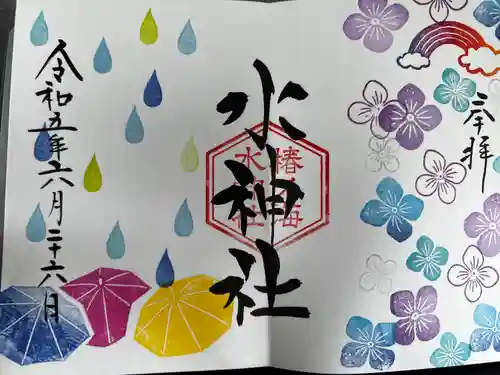 奉拝
水神社
椿乃海
水神社
令和五年六月二十六日